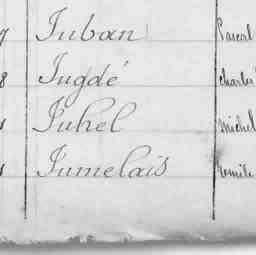 Juban Pascal
Jugdé Charles
Juhel Michel
Jumelais